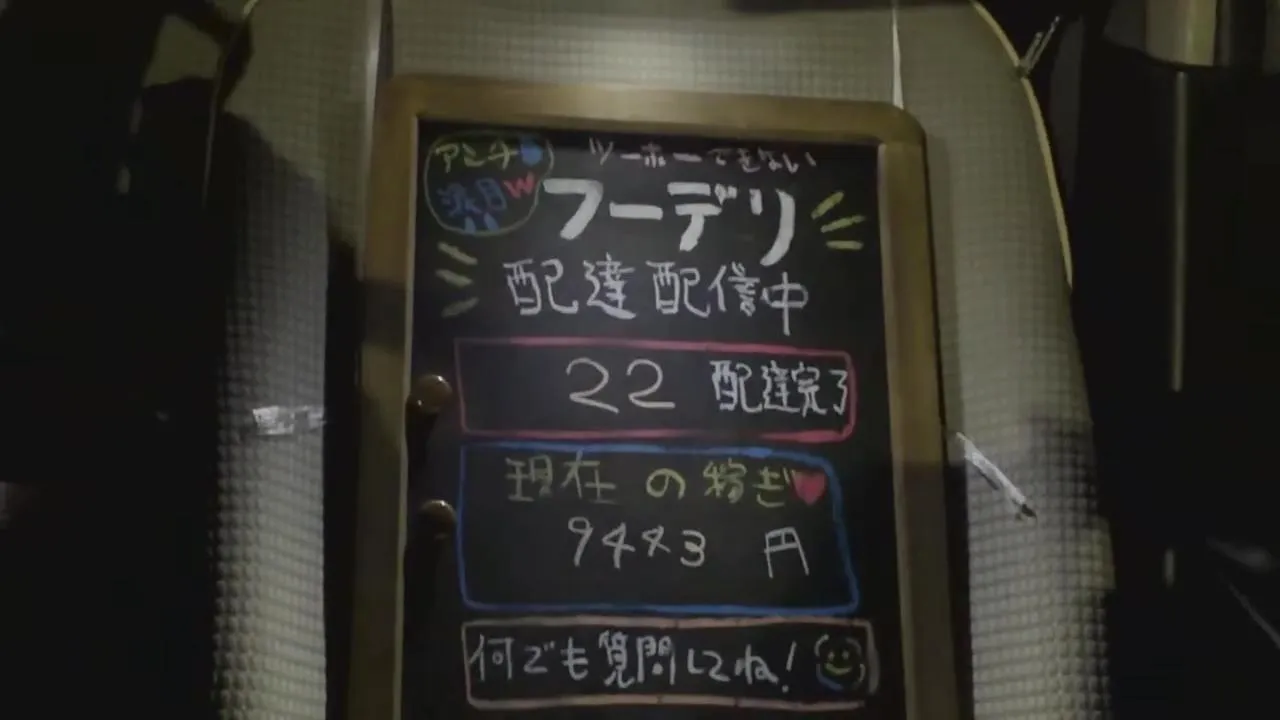 アンチ
涙目w
ツーホーできない
フーデリ
配達配信中
22 配達完了
現在の稼ぎ
9443 円
何でも質問してね!